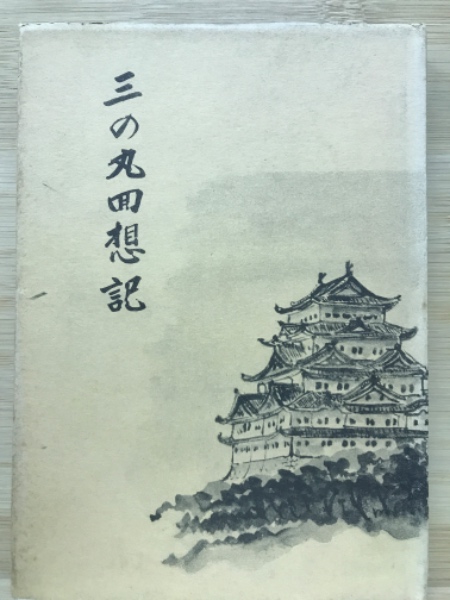 三の丸回想記